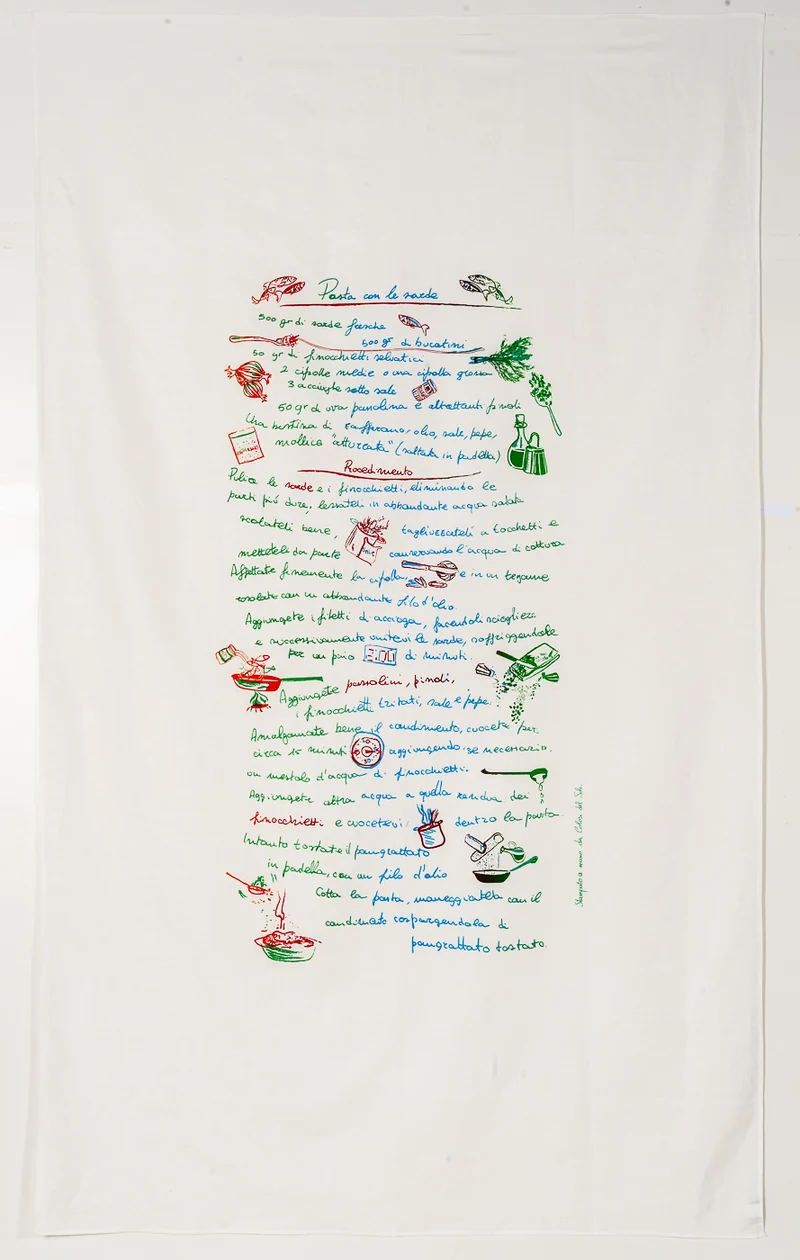 Pasta con le sarde
500 gr di sarde fresche
500 gr di bucatini
50 gr di finocchietti selvatici
2 cipolle medie o una cipolla grossa
3 acciughe sotto sale
50 gr di uva passolina e altrettanti pinoli
Una bustina di zafferano, olio, sale, pepe,
mollica "atturrata" (saltata in padella)
Procedimento
Pulire le sarde e i finocchietti, eliminando le
parti più dure, lessateli in abbondante acqua salata
scolateli bene, tagliuzzateli a tocchetti e
mettetele da parte conservando l'acqua di cottura
Affettate finemente la cipolla, e in un tegame
rosolate con un abbondante filo d'olio.
Aggiungete i filetti di acciuga, facendoli sciogliere
e successivamente unitevi le sarde, soffriggendole
per un paio di minuti.
Aggiungete passolini, pinoli,
i finocchietti tritati, sale e pepe.
Amalgamate bene il condimento, cuocete per
circa 15 minuti aggiungendo, se necessario,
un mestolo d'acqua di finocchietti.
Aggiungete altra acqua a quella residua dei
finocchietti e cuocetevi dentro la pasta.
Intanto tostate il pangrattato
in padella, con un filo d'olio
Cotta la pasta, maneggiatela con il
condimento cospargendola di
pangrattato tostato.
Stampato a mano da Colori del Sole